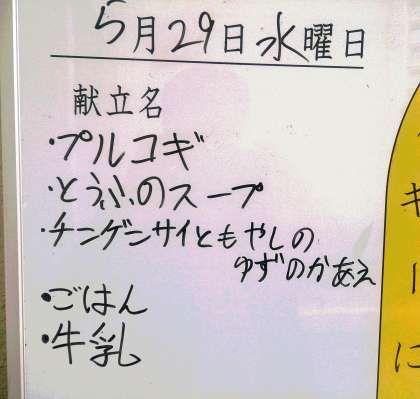 5月29日水曜日
献立名
・プルコギ
・とうふのスープ
・チンゲンサイともやしの
ゆずのかあえ
・ごはん
・牛乳
キ
ー
に